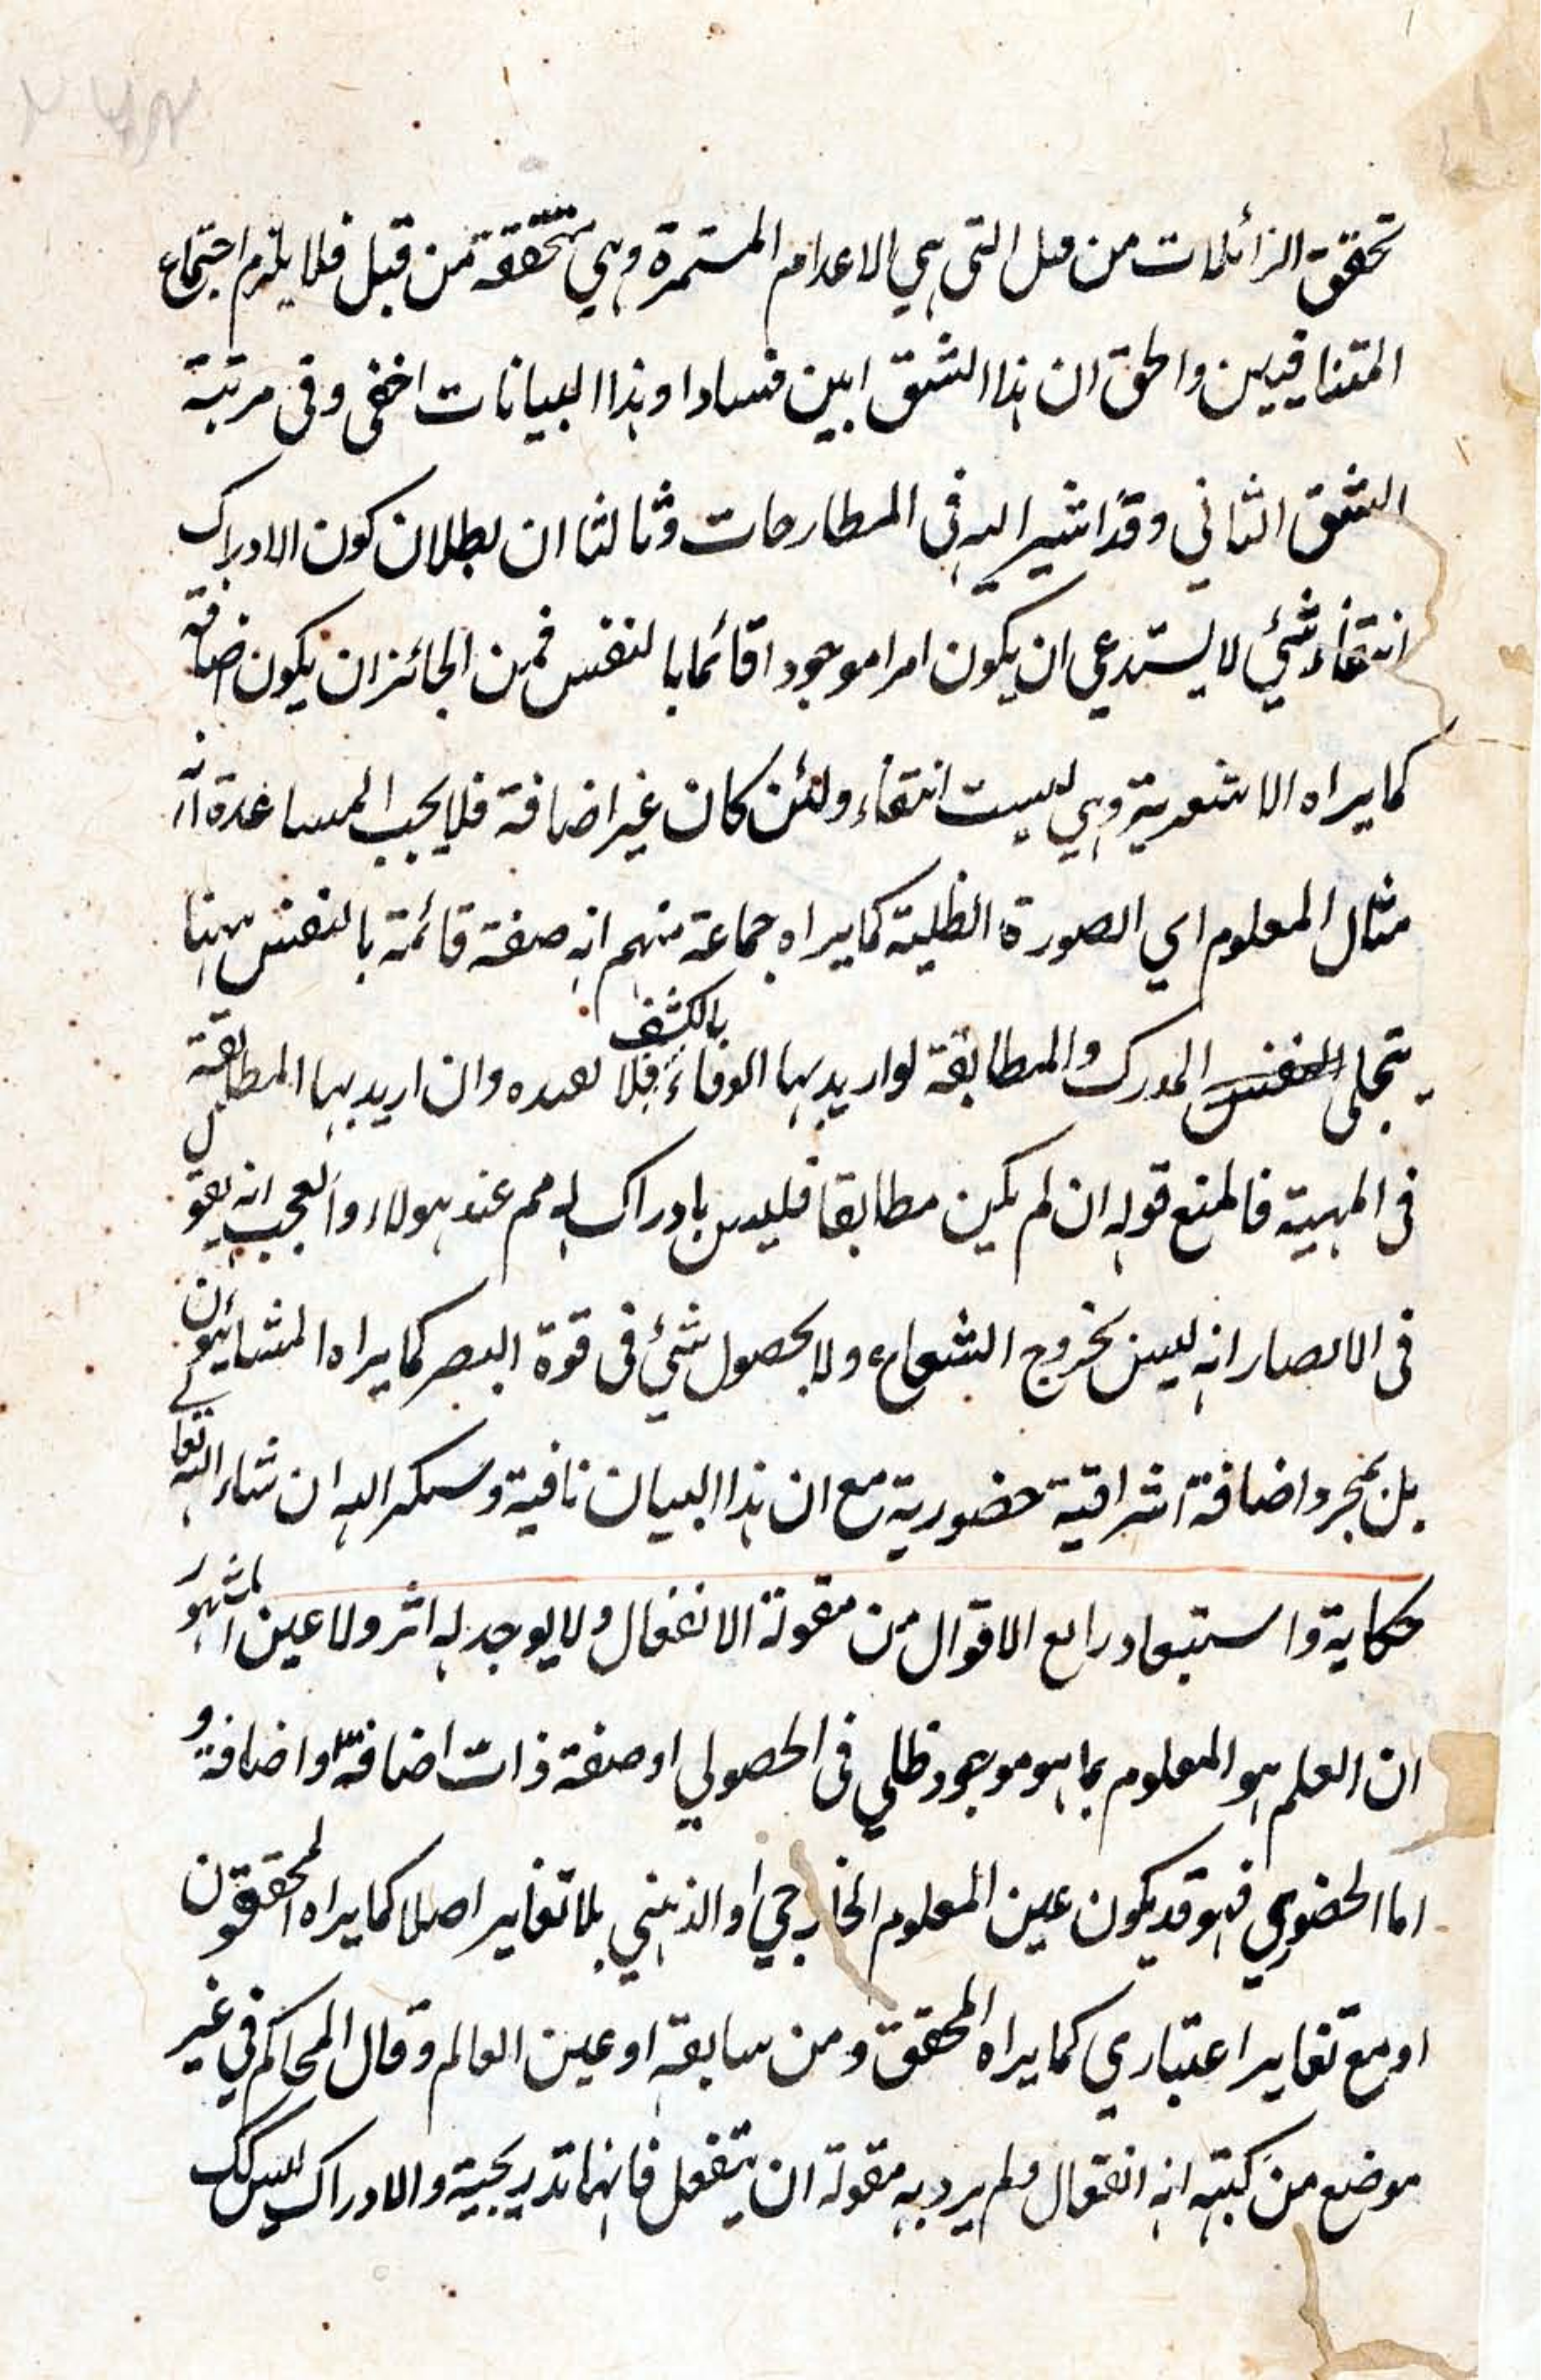 تحقق الزائلات من قبل التى هي الاعدام المستمرة وهي متحققة من قبل فلا يلزم اجتماع
المتنافيين والحق ان هذا الشق ابين فسادا وهذا البيانات اخفى وفى مرتبة
الشق الثاني وقد اشير اليه فى المطارحات وثالثا ان بطلان كون الادراك
انتفاء شئي لا يستدعي ان يكون امرا موجودا قائما بالنفس فمن الجائز ان يكون اضافة
كما يراه الاشعرية وهي ليست انتفاء ولئن كان غير اضافة فلا يجب المساعدة انه
مثال المعلوم اي الصورة الظلية كما يراه جماعة منهم انه صفة قائمة بالنفس بهنا
يتجلى المدرك والمطابقة لو اريد بها الوفاء بالكشف فلا لعده وان اريد بها المطابقة
فى المهية فالمنع قوله ان لم يكن مطابقا فليس بادراك له مم عند هولاء والعجب انه يقول
فى الابصار انه ليس بخروج الشعاع ولا بحصول شئي فى قوة البصر كما يراه المشايئون
بل بمجرد اضافة اشراقية حضورية مع ان هذا البيان نافية وستكر اليه ان شاء الله تعالے
حكاية واستبعاد رابع الاقوال من مقولة الانفعال ولا يوجد له اثر ولا عين المشهور
ان العلم هو المعلوم بما هو موجود ظلي فى الحصولي او صفة ذات اضافة او اضافة و
اما الحضوري فهو قد يكون عين المعلوم الخارجي او الذهني بلا تغاير اصلا كما يراه المحققون
او مع تغاير اعتباري كما يراه المحقق ومن سابقه او عين العالم وقال المحاكم في غير
موضع من كتبه انه انفعال ولم يرد به مقولة ان ينفعل فانهما تدريجية والادراك ليس كك